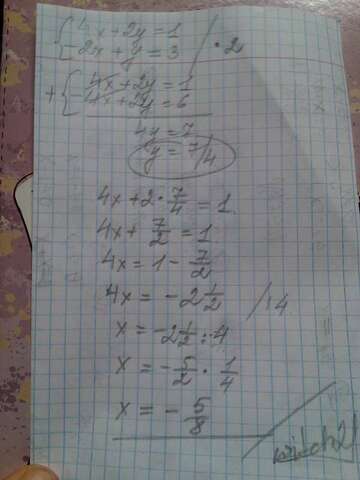 { 4x + 2y = 1
{ -2x + y = 3 / · 2
+ { 4x + 2y = 1
{ -4x + 2y = 6
4y = 7
y = 7/4
4x + 2 · 7/4 = 1
4x + 7/2 = 1
4x = 1 - 7/2
4x = -2 1/2 / : 4
x = -2 1/2 : 4
x = -5/2 · 1/4
x = -5/8